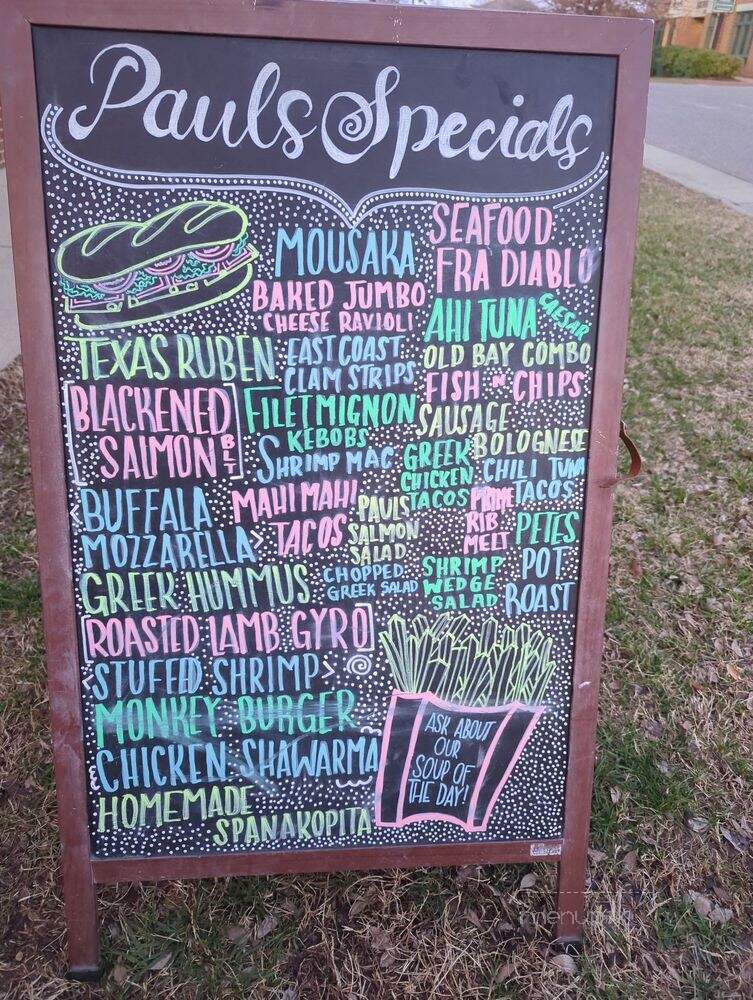 Pauls Specials
MOUSAKA
BAKED JUMBO
CHEESE RAVIOLI
SEAFOOD
FRA DIABLO
AHI TUNA CAESAR
TEXAS RUBEN
EAST COAST
CLAM STRIPS
OLD BAY COMBO
FISH N CHIPS
BLACKENED
SALMON BLT
FILET MIGNON
KEBOBS
SHRIMP MAC
SAUSAGE
BOLOGNESE
GREEK
CHICKEN
TACOS
CHILI TUNA
TACOS
BUFFALA
MOZZARELLA
MAHI MAHI
TACOS
PAULS
SALMON
SALAD
PRIME
RIB
MELT
PETES
POT
ROAST
GREEK HUMMUS
CHOPPED
GREEK SALAD
SHRIMP
WEDGE
SALAD
ROASTED LAMB GYRO
STUFFED SHRIMP
MONKEY BURGER
CHICKEN SHAWARMA
HOMEMADE
SPANAKOPITA
ASK ABOUT
OUR
SOUP OF
THE DAY!